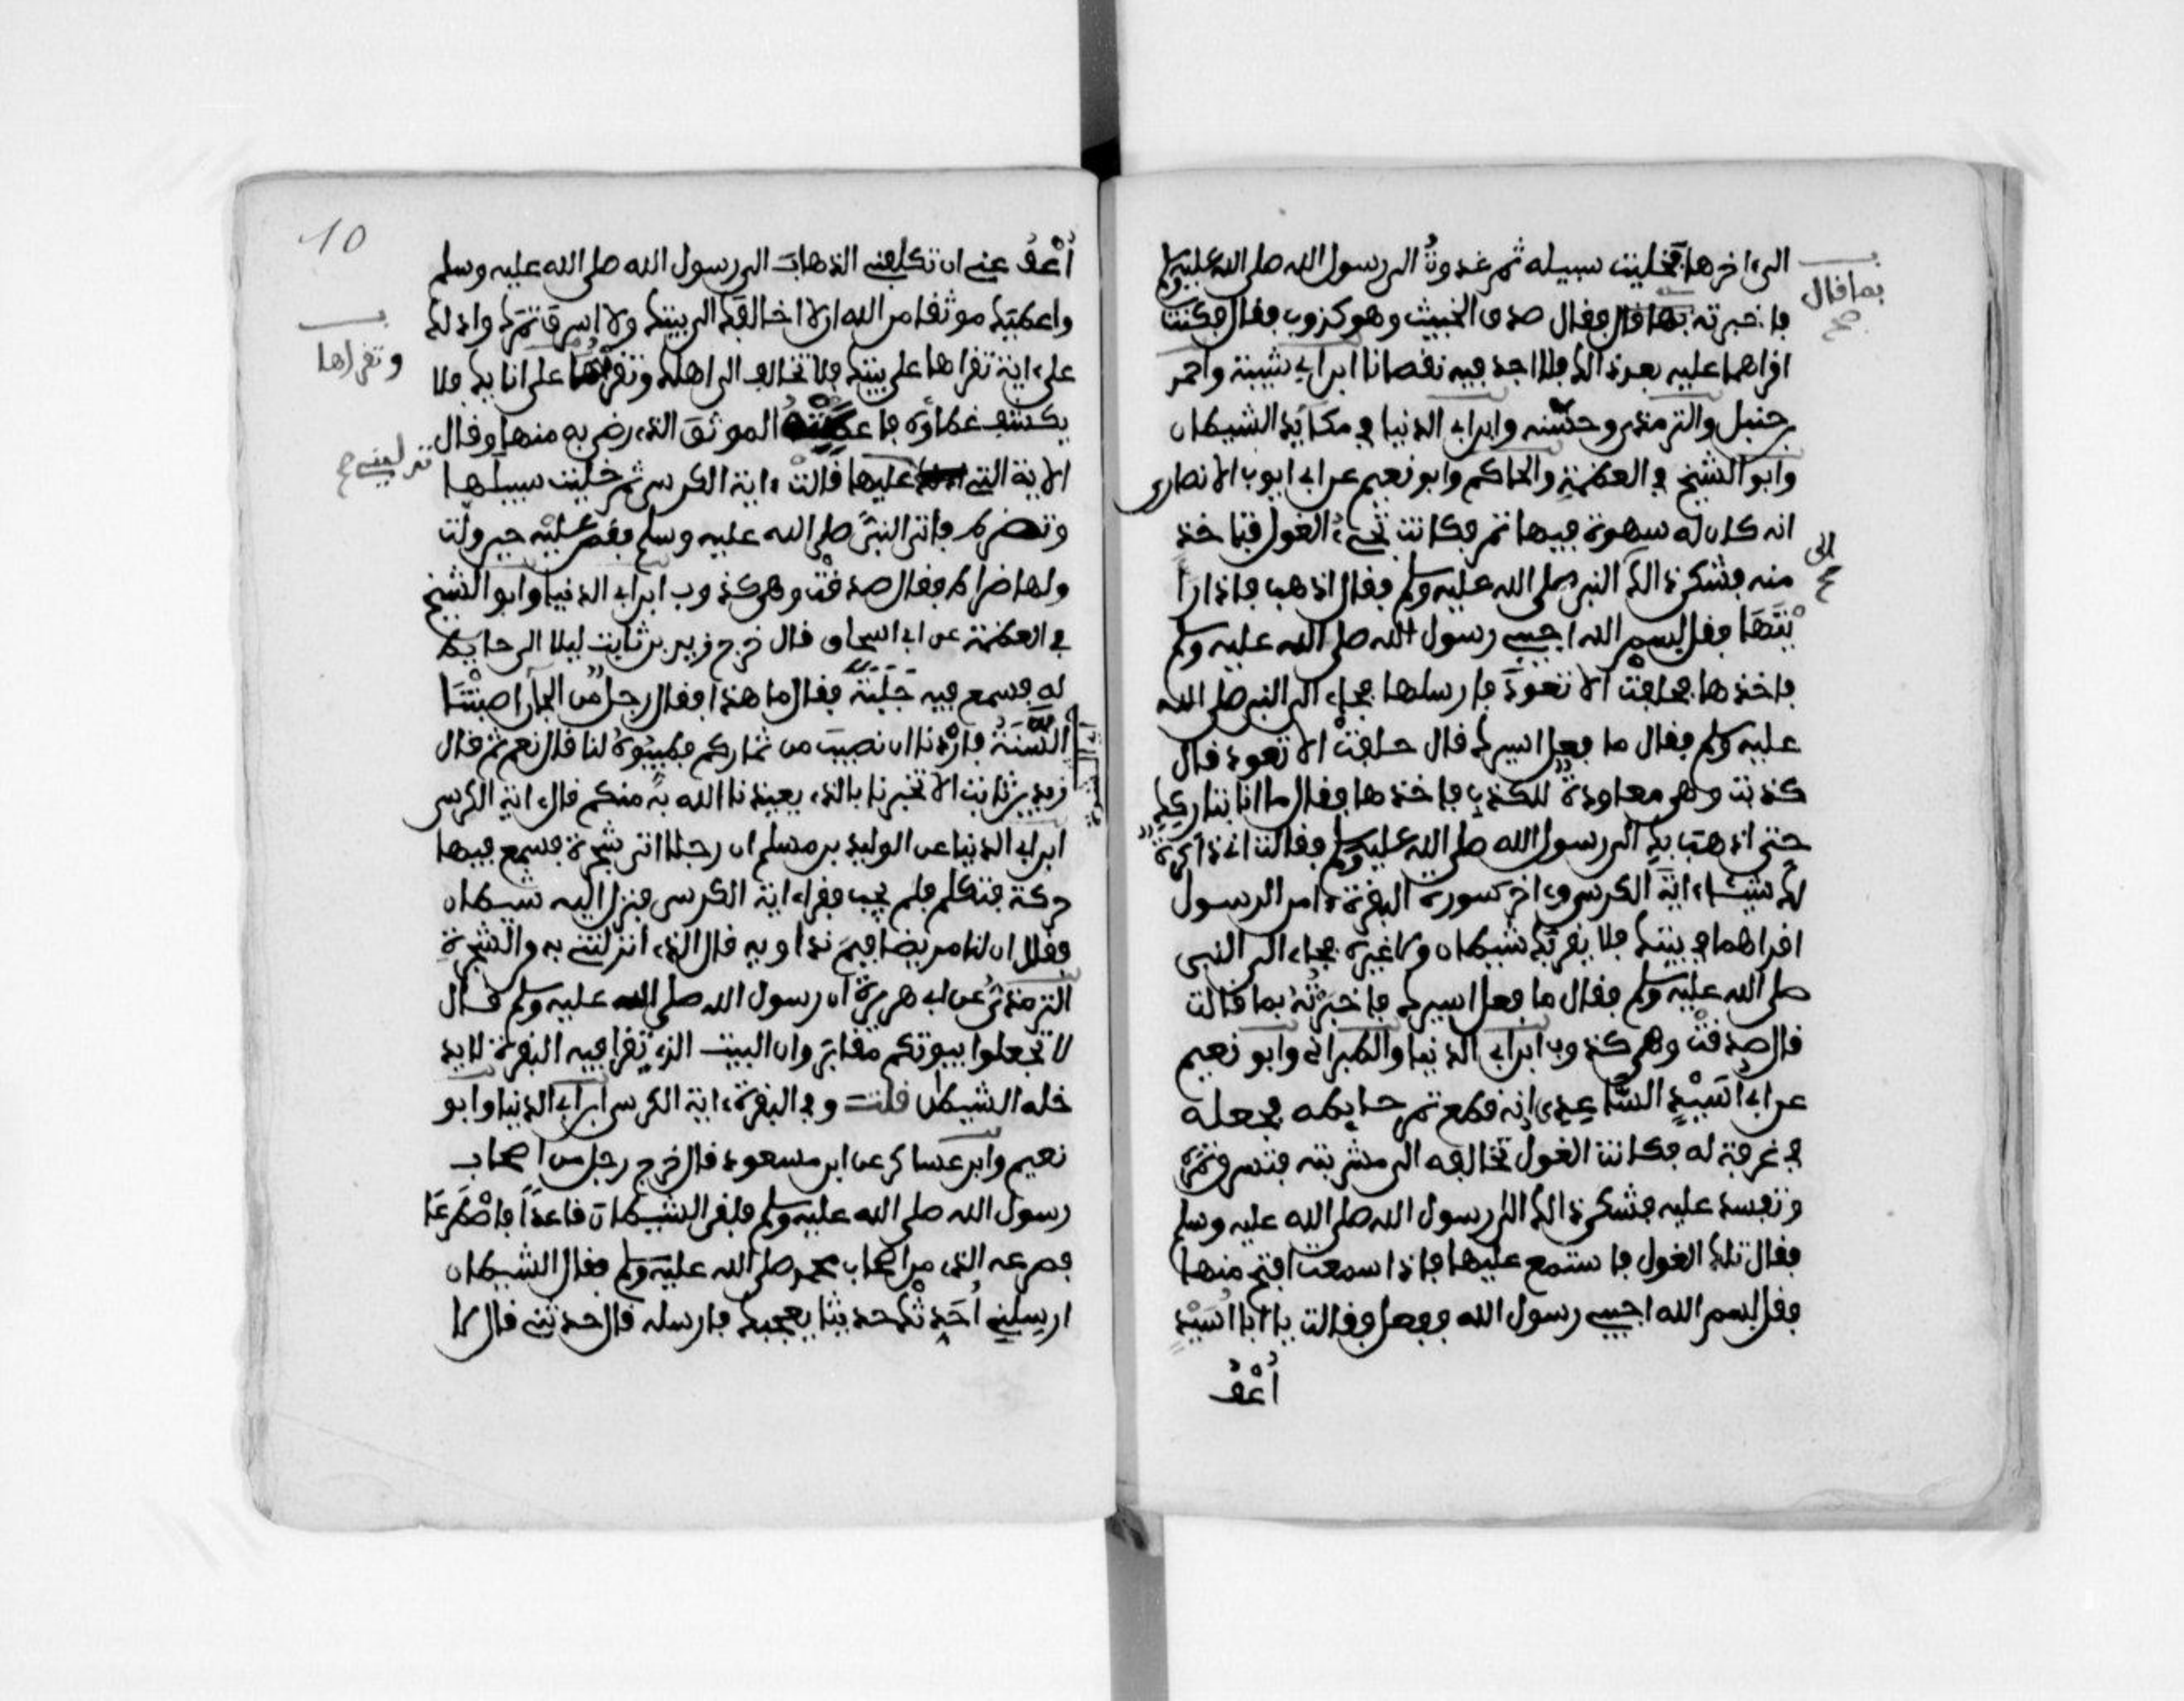 الى اخرها فخليت سبيله ثم غدوت الى رسول الله صلى الله عليه وسلم
بما قال
صح
فاخبرته بما قال فقال صدق الخبيث وهو كذوب فقال فكنت
اقراهما عليه بعد ذلك فلا اجد فيه نقصانا ابن ابي شيبة واحمد
بن حنبل والترمذي وحسنه وابن ابي الدنيا في مكايد الشيطان
وابو الشيخ في العظمة والحاكم وابو نعيم عن ابي ايوب الانصاري
انه كان له سهوة فيها تمر فكانت تجيء الغول فتاخذ
الى
صح
منه فشكى ذلك النبي صلى الله عليه وسلم فقال اذهب فاذا را
يْتَهَا فقل بسم الله اجيبي رسول الله صلى الله عليه وسلم
فاخذها فحلفت ان لا تعود فارسلها فجاء الى النبي صلى الله
عليه وسلم فقال ما فعل اسيرك قال حلفت ان لا تعود قال
كذبت وهي معاودة للكذب فاخذها فقال ما انا بتاركك
حتى اذهب بك الى رسول الله صلى الله عليه وسلم فقالت اني ذاكرة
لك شيئا ءاية الكرسي وءاخر سورة البقرة ءامن الرسول
اقراهما في بيتك فلا يقربك شيطان ولا غيره فجاء الى النبي
صلى الله عليه وسلم فقال ما فعل اسيرك فاخبرته بما قالت
قال صدقت وهي كذوب ابن ابي الدنيا والطبراني وابو نعيم
عن ابي اسيد الساعدي انه قطع تمر حايطه فجعله
في غرفة له فكانت الغول تخالفه الى مشربته فتسرق تمره
وتفسد عليه فشكى ذلك الى رسول الله صلى الله عليه وسلم
فقال تلك الغول فاستمع عليها فاذا سمعت اقتح منها
فقل بسم الله اجيبي رسول الله ففعل فقالت يا ابا اسيد
اُعْفُ
10
اُعْفُ عني ان تكلفني الذهاب الى رسول الله صلى الله عليه وسلم
واعطيك موثقا من الله ان لا اخالفك الى بيتك ولا اسرق تمرك وادلك
وتقراها
على ءاية تقراها على بيتك فلا تخالف الى اهلك وتقراها على انايك فلا
يكشف غطاوه فاعطته الموثق الذي رضي به منها وقال
تدليني صح
الاية التي عليها قالت ءاية الكرسي ثم خليت سبيلها
وتضرط فاتى النبي صلى الله عليه وسلم فقص عليه حين ولت
ولها ضراط فقال صدقت وهي كذوب ابن ابي الدنيا وابو الشيخ
في العظمة عن ابي اسحاق قال خرج زيد بن ثابت ليلا الى حايط
له فسمع فيه جلبة فقال ما هذا فقال رجل من الجان اصابتنا
السَّنَةُ فاردنا ان نصيب من ثماركم فطيبوه لنا قال نعم ثم قال
زيد بن ثابت الا تخبرنا بالذي يعيذنا الله به منكم قال ءاية الكرسي
ابن ابي الدنيا عن الوليد بن مسلم ان رجلا اتى شجرة فسمع فيها
حركة فتكلم فلم يجب فقرا ءاية الكرسي فنزل اليه شيطان
فقال ان لنا مريضا فبم نداويه قال الذي انزلتني به من الشجرة
الترمذي عن ابي هريرة ان رسول الله صلى الله عليه وسلم قال
لا تجعلوا بيوتكم مقابر وان البيت الذي تقرا فيه البقرة لا يد
خله الشيطان قلت وفي البقرة ءاية الكرسي ابن ابي الدنيا وابو
نعيم وابن عساكر عن ابن مسعود قال خرج رجل من اصحاب
رسول الله صلى الله عليه وسلم فلقي الشيطان قاعدا فاصطرعا
فصرعه الذي من اصحاب محمد صلى الله عليه وسلم فقال الشيطان
ارسلني اُحَدِّثْكَ حديثا يعجبك فارسله قال حدثني قال لا